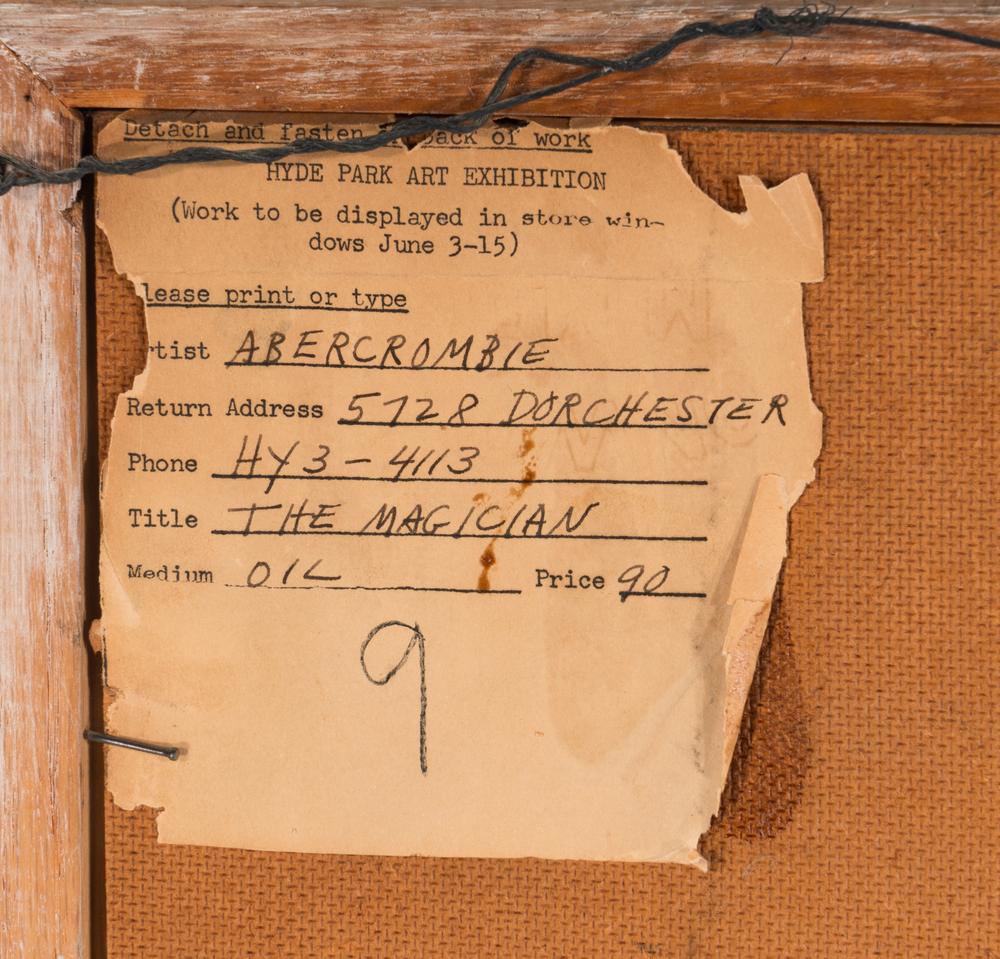 Detach and fasten back of work
HYDE PARK ART EXHIBITION
(Work to be displayed in store win-
dows June 3-15)
lease print or type
rtist ABERCROMBIE
Return Address 5728 DORCHESTER
Phone HY 3-4113
Title THE MAGICIAN
Medium OIL Price 90
9